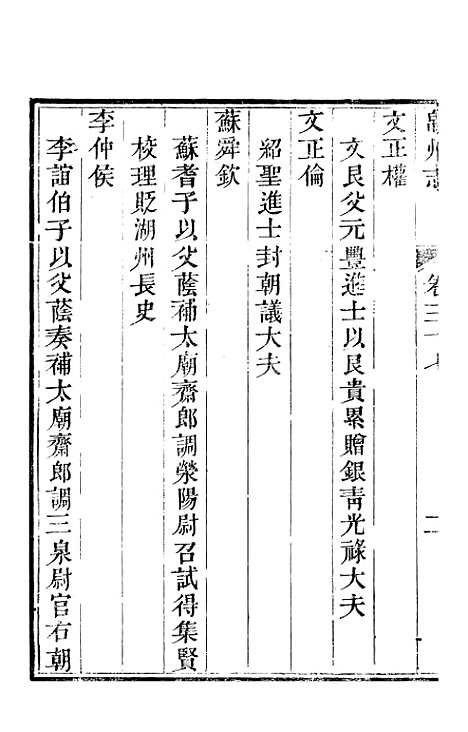 州志 卷三十七 二
文正權
文艮父元豐進士以艮貴累贈銀靑光祿大夫
文正倫
紹聖進士封朝議大夫
蘇舜欽
蘇耆子以父蔭補太廟齋郎調滎陽尉召試得集賢
校理貶湖州長史
李仲侯
李誼伯子以父蔭奏補太廟齋郎調三泉尉官右朝